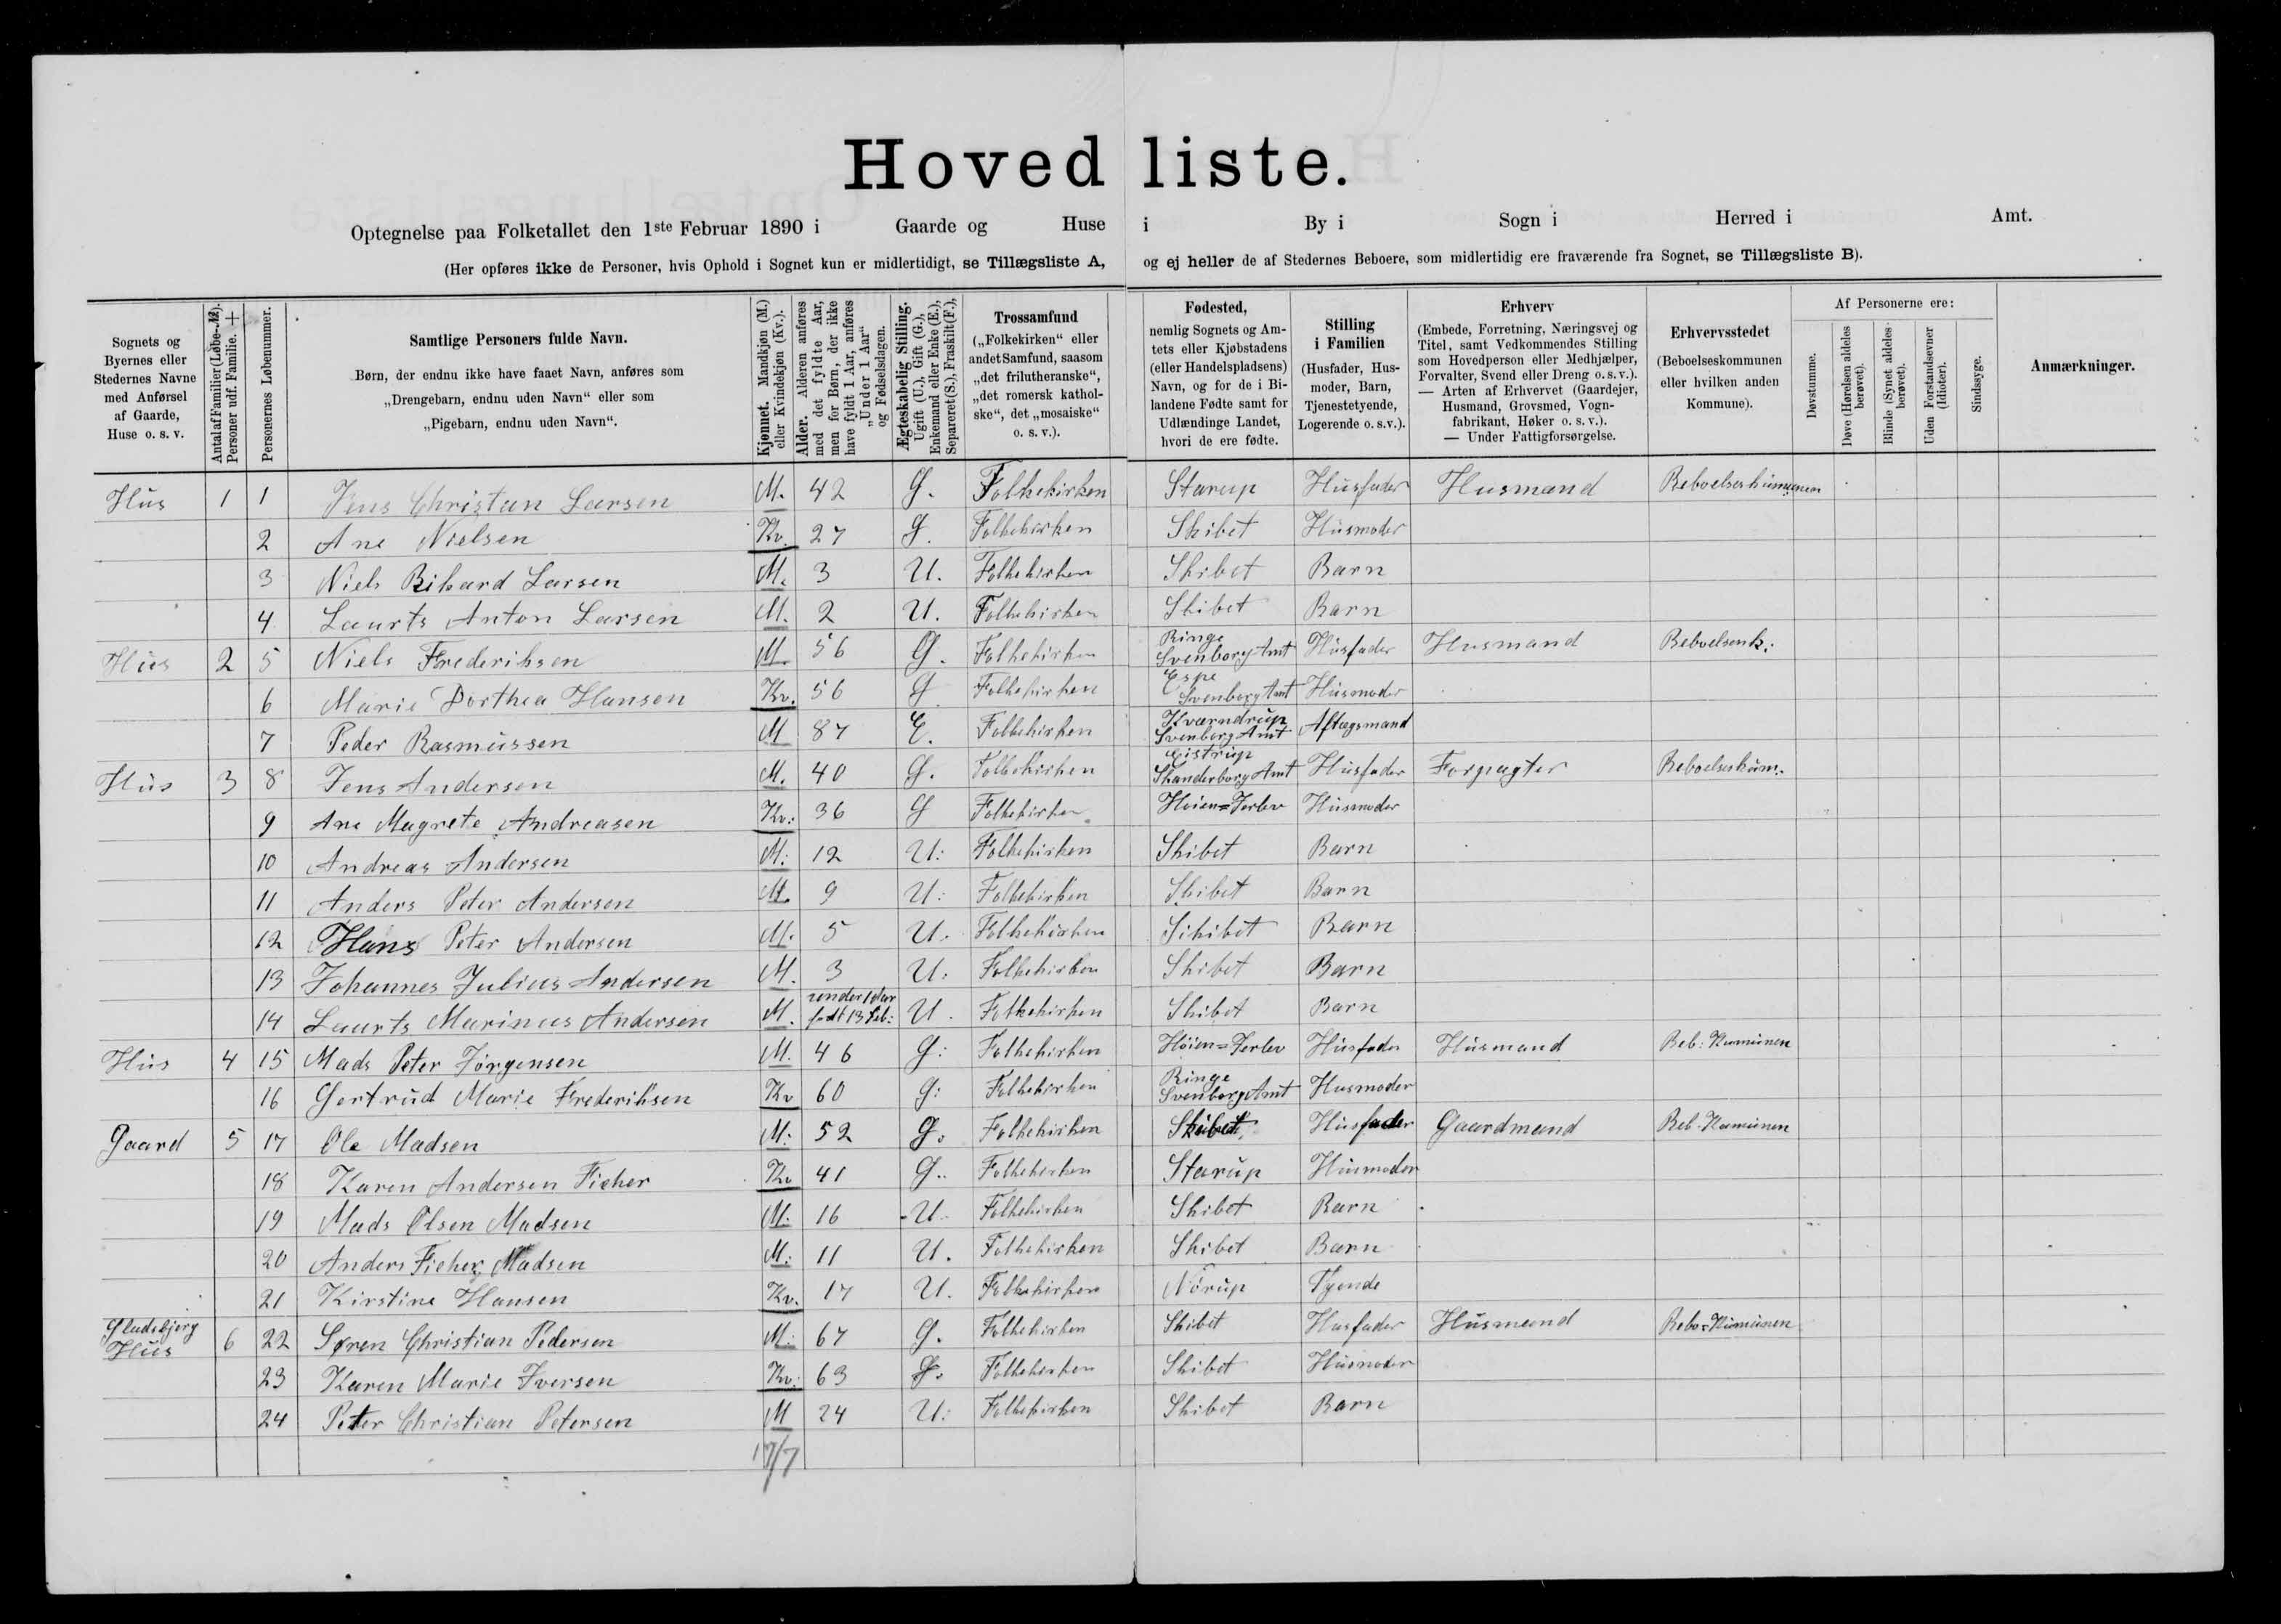 Hovedliste.
Optegnelse paa Folketallet den 1ste Februar 1890 i Gaarde og Huse i By i Sogn i Herred i Amt.
(Her opføres ikke de Personer, hvis Ophold i Sognet kun er midlertidigt, se Tillægsliste A, og ej heller de af Stedernes Beboere, som midlertidig ere fraværende fra Sognet, se Tillægsliste B).
Sognets og
Byernes eller
Stedernes Navne
med Anførsel
af Gaarde,
Huse o. s. v.
Antal af Familier (Løbe-№).
Personer udf. Familie. +
Personernes Løbenummer.
Samtlige Personers fulde Navn.
Børn, der endnu ikke have faaet Navn, anføres som
„Drengebarn, endnu uden Navn“ eller som
„Pigebarn, endnu uden Navn“.
Kjønnet. Mandkjøn (M.)
eller Kvindekjøn (Kv.).
Alder. Alderen anføres
med det fyldte Aar,
men for Børn, der ikke
have fyldt 1 Aar, anføres
„Under 1 Aar“
og Fødselsdagen.
Ægteskabelig Stilling.
Ugift (U.), Gift (G.),
Enkemand eller Enke (E.),
Separeret (S.), Fraskilt (F.),
Trossamfund
(„Folkekirken“ eller
andet Samfund, saasom
„det frilutheranske“,
„det romersk kathol-
ske“, det „mosaiske“
o. s. v.).
Fødested,
nemlig Sognets og Am-
tets eller Kjøbstadens
(eller Handelspladsens)
Navn, og for de i Bi-
landene Fødte samt for
Udlændinge Landet,
hvori de ere fødte.
Stilling
i Familien
(Husfader, Hus-
moder, Barn,
Tjenestetyende,
Logerende o. s.v.).
Erhverv
(Embede, Forretning, Næringsvej og
Titel, samt Vedkommendes Stilling
som Hovedperson eller Medhjælper,
Forvalter, Svend eller Dreng o. s. v.).
— Arten af Erhvervet (Gaardejer,
Husmand, Grovsmed, Vogn-
fabrikant, Høker o. s. v.).
— Under Fattigforsørgelse.
Erhvervsstedet
(Beboelseskommunen
eller hvilken anden
Kommune).
Af Personerne ere:
Døvstumme.
Døve (Hørelsen aldeles
berøvet).
Blinde (Synet aldeles
berøvet).
Uden Forstandsevner
(Idioter).
Sindssyge.
Anmærkninger.
Hus 1 1 Jens Christan Larsen M. 42 G. Folkekirken Starup Husfader Husmand Beboelseskumunen
2 Ane Nielsen Kv. 27 G. Folkekirken Skibet Husmoder
3 Niels Rikard Larsen M. 3 U. Folkekirken Skibet Barn
4 Laurts Anton Larsen M. 2 U. Folkekirken Skibet Barn
Hus 2 5 Niels Frederiksen M. 56 G. Folkekirken Ringe Svenborg Amt Husfader Husmand Beboelsesk.
6 Marie Dorthea Hansen Kv. 56 G Folkekirken Espe Svenborg Amt Husmoder
7 Peder Rasmussen M 87 E. Folkekirken Kværndrup Svenborg Amt Aftægsmand
Hus 3 8 Jens Andersen M. 40 G. Folkekirken Eistrup Skanderborg Amt Husfader Forpagter Beboelseskum.
9 Ane Magrete Andreasen Kv: 36 G Folkekirken Høien=Jerlev Husmoder
10 Andreas Andersen M: 12 U: Folkekirken Skibet Barn
11 Anders Peter Andersen M. 9 U: Folkekirken Skibet Barn
12 Hans Peter Andersen M. 5 U. Folkekirken Skibet Barn
13 Johannes Julius Andersen M. 3 U: Folkekirken Skibet Barn
14 Laurts Marinus Andersen M. under 1 Aar født 13 Feb: U. Folkekirken Skibet Barn
Hus 4 15 Mads Peter Jörgensen M. 46 G: Folkekirken Höien=Jerlev Husfader Husmand Beb: Kumunen
16 Gertrud Marie Frederiksen Kv 60 G: Folkekirken Ringe Svenborg Amt Husmoder
Gaard 5 17 Ole Madsen M: 52 G. Folkekirken Skibet Husfader Gaardmand Beb. Kumunen
18 Karen Andersen Ficher Kv 41 G. Folkekirken Starup Husmoder
19 Mads Olsen Madsen M: 16 U. Folkekirken Skibet Barn
20 Anders Ficher Madsen M: 11 U. Folkekirken Skibet Barn
21 Kirstine Hansen Kv. 17 U. Folkekirken Nörup Tyende
Gladsbjerg Hus 6 22 Søren Christian Pedersen M: 67 G. Folkekirken Skibet Husfader Husmand Bebo=Kumunen
23 Karen Marie Iversen Kv: 63 G. Folkekirken Skibet Husmoder
24 Peter Christian Petersen M 24 U: Folkekirken Skibet Barn
17/7